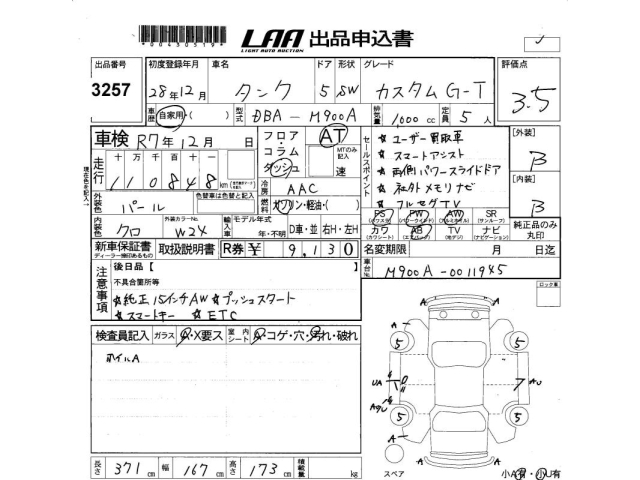 *00430519*
LAA 出品申込書
LIGHT AUTO AUCTION
出品番号 3257
初度登録年月 28年12月
車名 タンク
ドア 5
形状 SW
グレード カスタムG-T
評価点 3.5
車歴 自家用・( )
型式 DBA-M900A
排気量 1000 cc
定員 5人
車検 R7年12月 日
フロア・コラム ダッシュ
AT
MTのみ記入 速
セールスポイント
★ユーザー買取車
★スマートアシスト
★両側パワースライドドア
★社外メモリナビ
★フルセグTV
[外装] B
[内装] B
走行 十万千百十一
110848 km
冷房 AAC
燃料 ガソリン・軽油・( )
外装色 パール
色替車は色替と記入
内装色 クロ
外装カラーNo. W24
輸入車 モデル年式 年・不明
D車・並 右H・左H
PS PW AW SR
(パワステ) (パワーウインド) (アルミホイル) (サンルーフ)
カワ AB TV ナビ
(カワシート) (エアバッグ) (地デジ) (ナビゲーション)
純正品のみ丸印
新車保証書 取扱説明書
ディーラー捺印あるもの
R券 ¥ 9,130
名変期限 月 日迄
車台No. M900A-0011945
注意事項
後日品【 】
不具合箇所等
★純正15インチAW ★プッシュスタート
★スマートキー ★ETC
ロック車
検査員記入 ガラス A・X要ス 室内シート A・コゲ・穴・汚れ・破れ
ホイルA
A A
5 5
UA AU
5 5
A A
長さ 371 cm 幅 167 cm 高さ 173 cm 積載量 kg
スペア
小A有・小U有